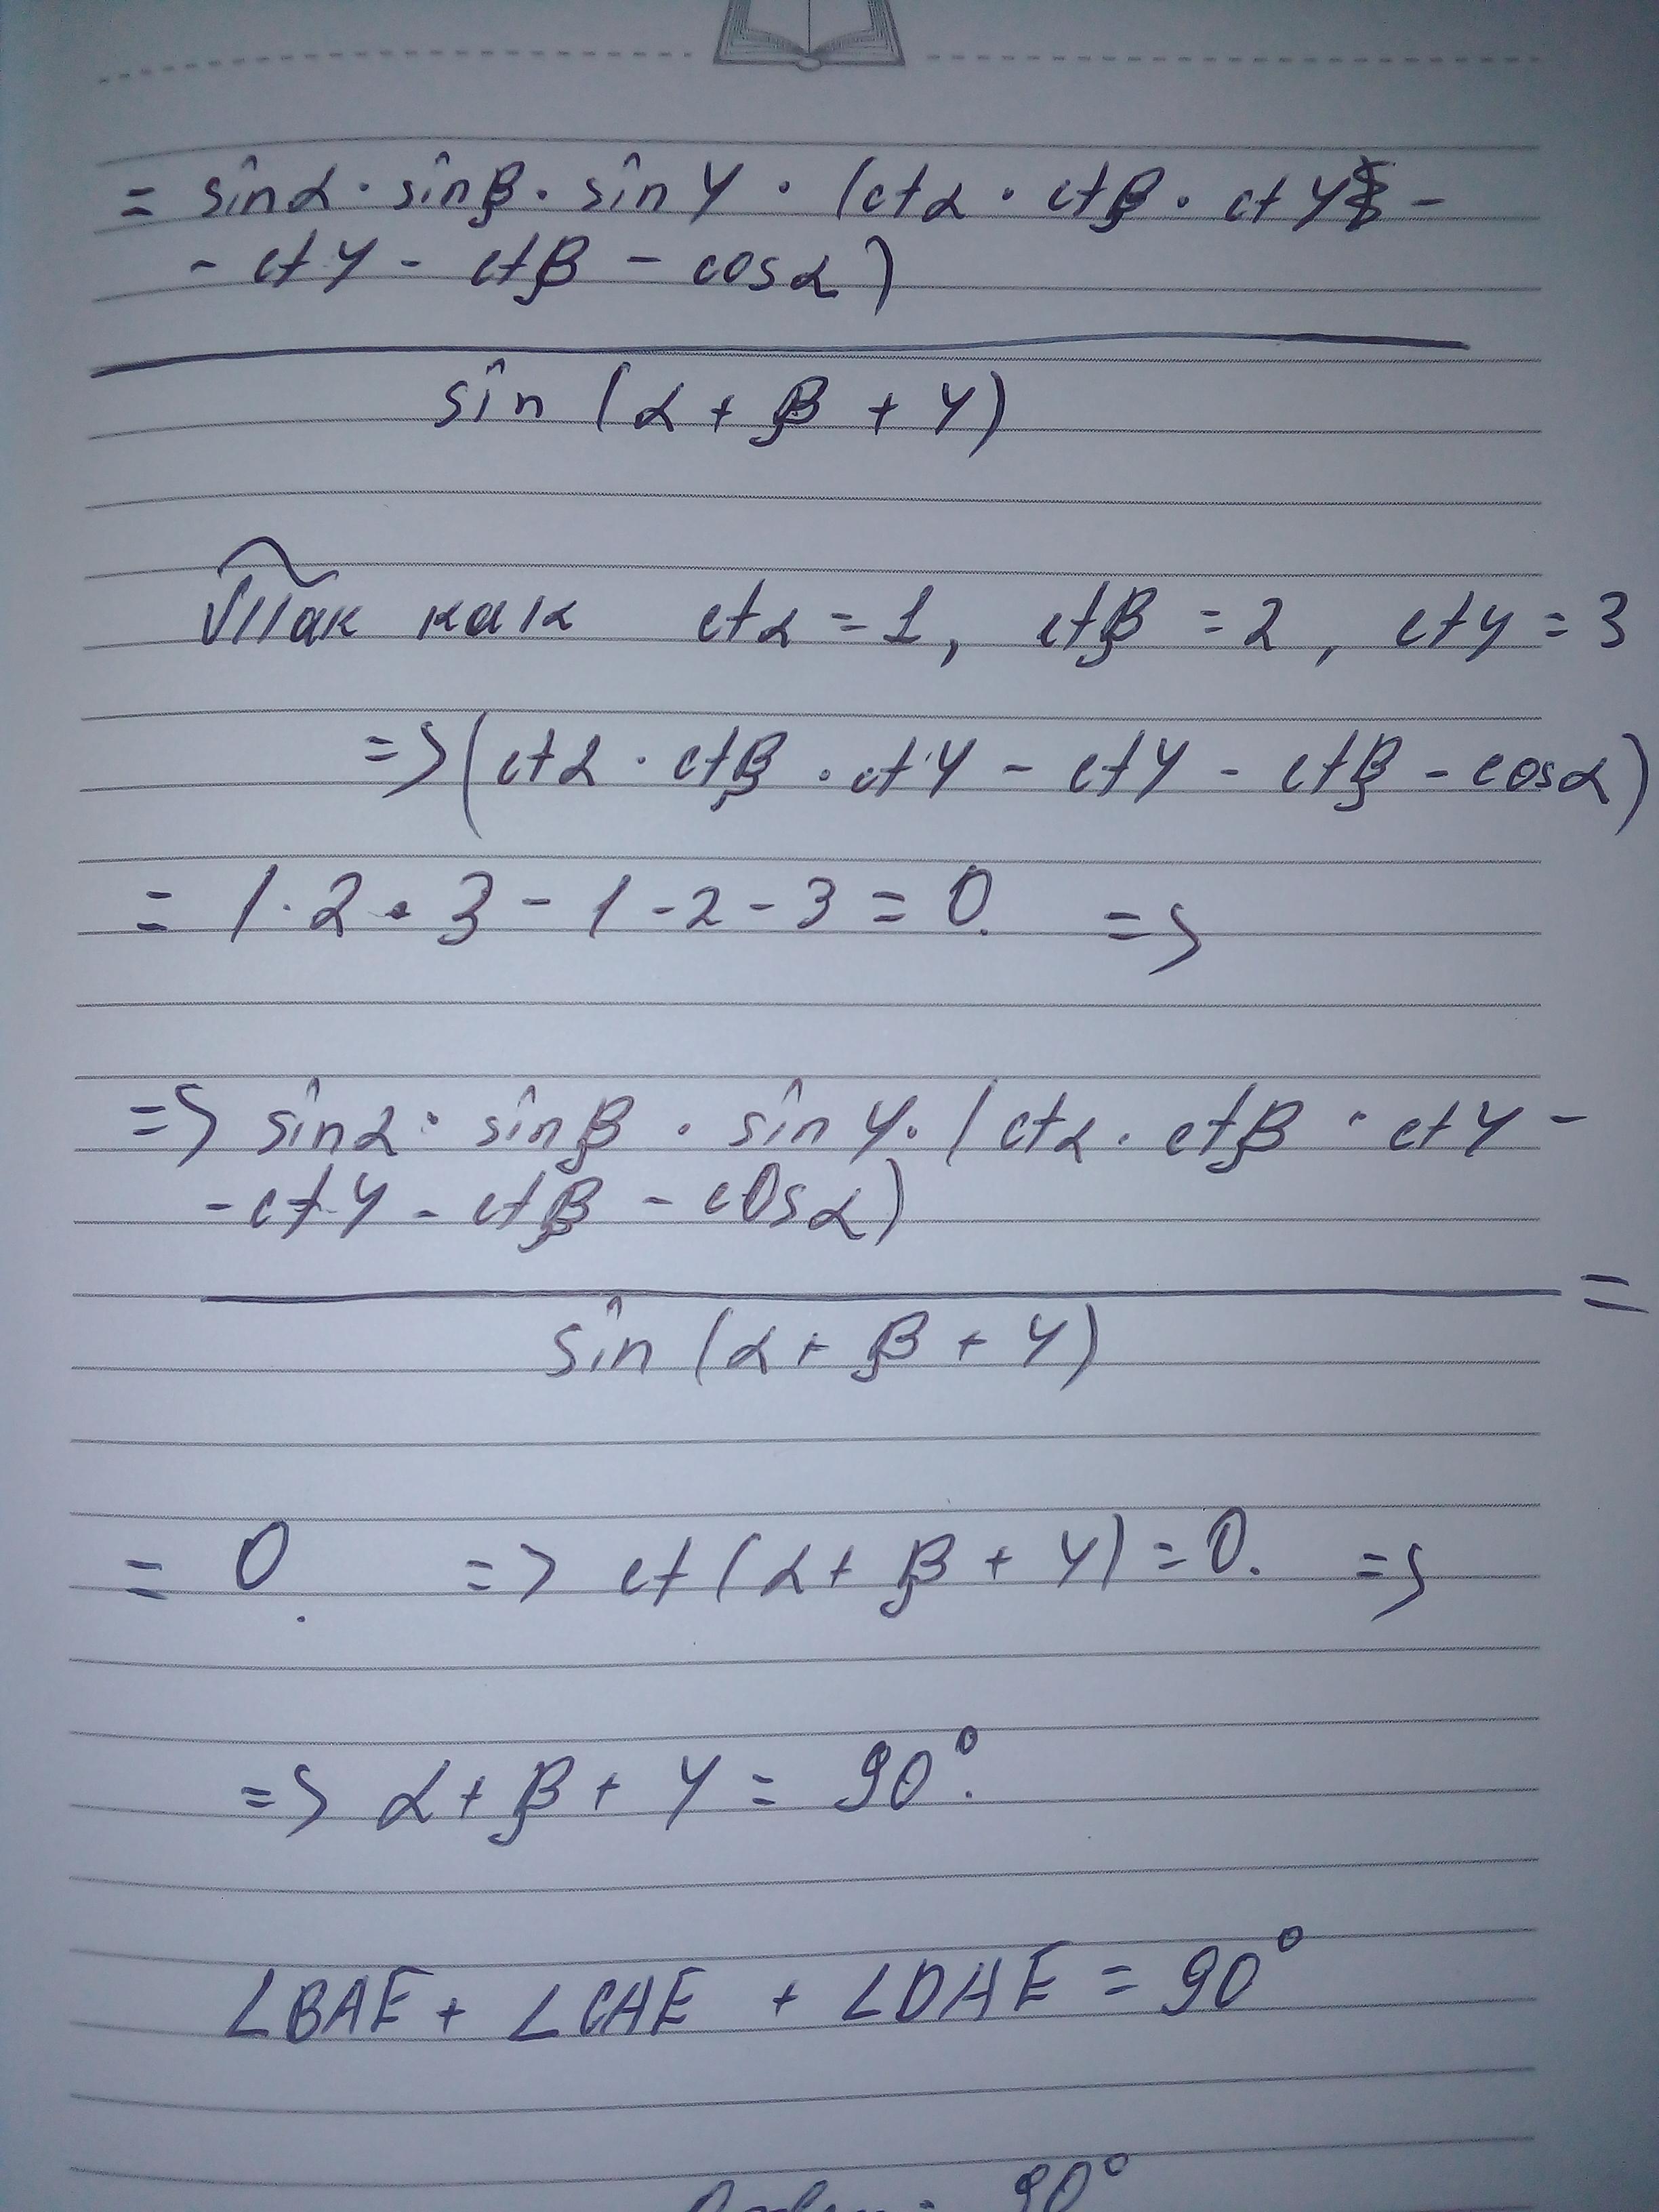 = sinα · sinβ · sin γ · (ctα · ctβ · ctγ -
- ctγ - ctβ - cosα)
sin (α + β + γ)
Так как ctα = 1, ctβ = 2, ctγ = 3
=> (ctα · ctβ · ctγ - ctγ - ctβ - cosα)
= 1 · 2 · 3 - 1 - 2 - 3 = 0. =>
=> sinα · sinβ · sin γ · (ctα · ctβ · ctγ -
- ctγ - ctβ - cosα)
=
sin (α + β + γ)
= 0. => ct (α + β + γ) = 0. =>
=> α + β + γ = 90°.
∠BAE + ∠CAE + ∠DAE = 90°
90°